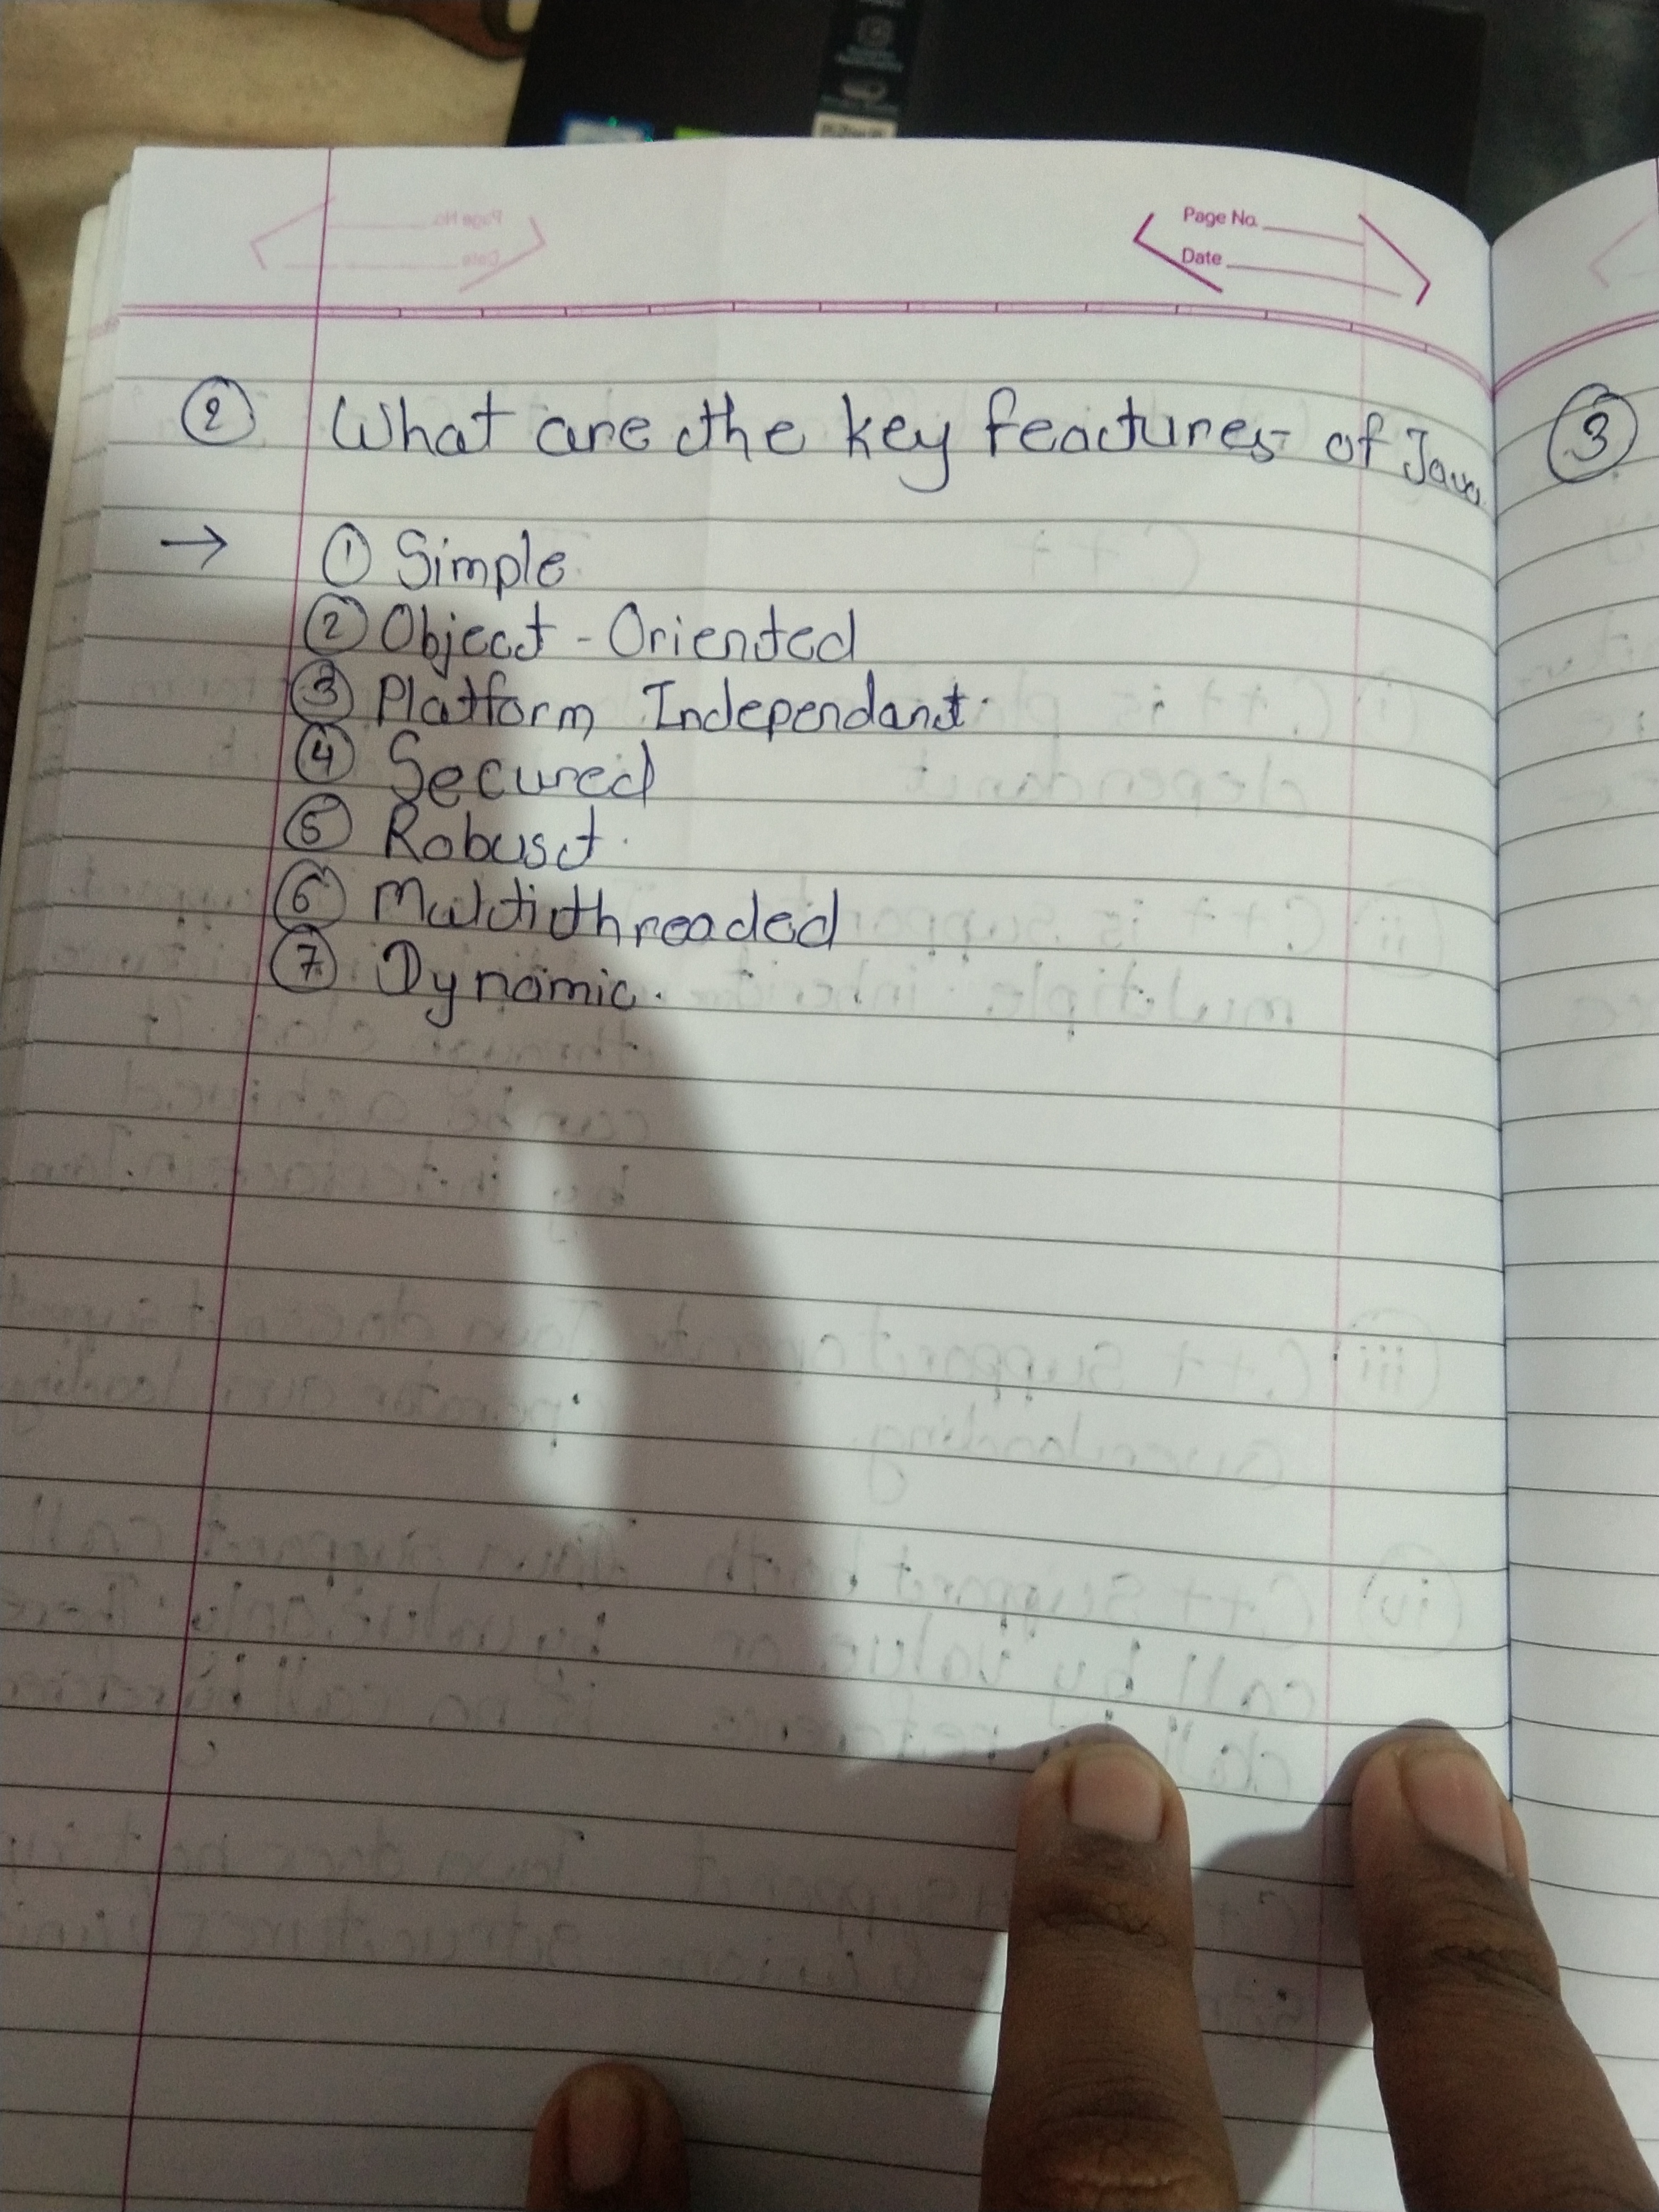 Page No.
Date
② What are the key features of Java
→ ① Simple
② Object - Oriented
③ Platform Independant.
④ Secured
⑤ Robust.
⑥ Multithreaded
⑦ Dynamic.
③